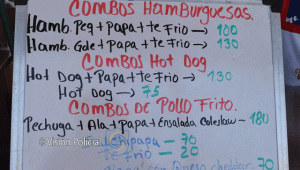 COMBOS HamBurguesas.
Hamb. Peq + Papa + te Frio → 100
Hamb. Gde + Papa + te Frio → 130
COMBOS Hot Dog
Hot Dog + Papa + te Frio → 130
Hot Dog → 75
COMBOS DE POLLO FRITO.
Pechuga + Ala + Papa + Ensalada Coleslaw - 180
© Vision Policial
70
te Frio - 20
cheddar 70